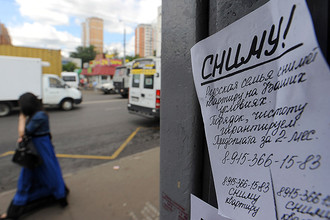 СНИМУ!
Русская семья снимет
квартиру на Ваших
условиях
Порядок, чистоту
гарантируем
Предоплата за 2 мес.
8-915-366-15-83
8-915-366-15-83
СНИМУ
квартиру
8-915-366
15-83
СНИМУ